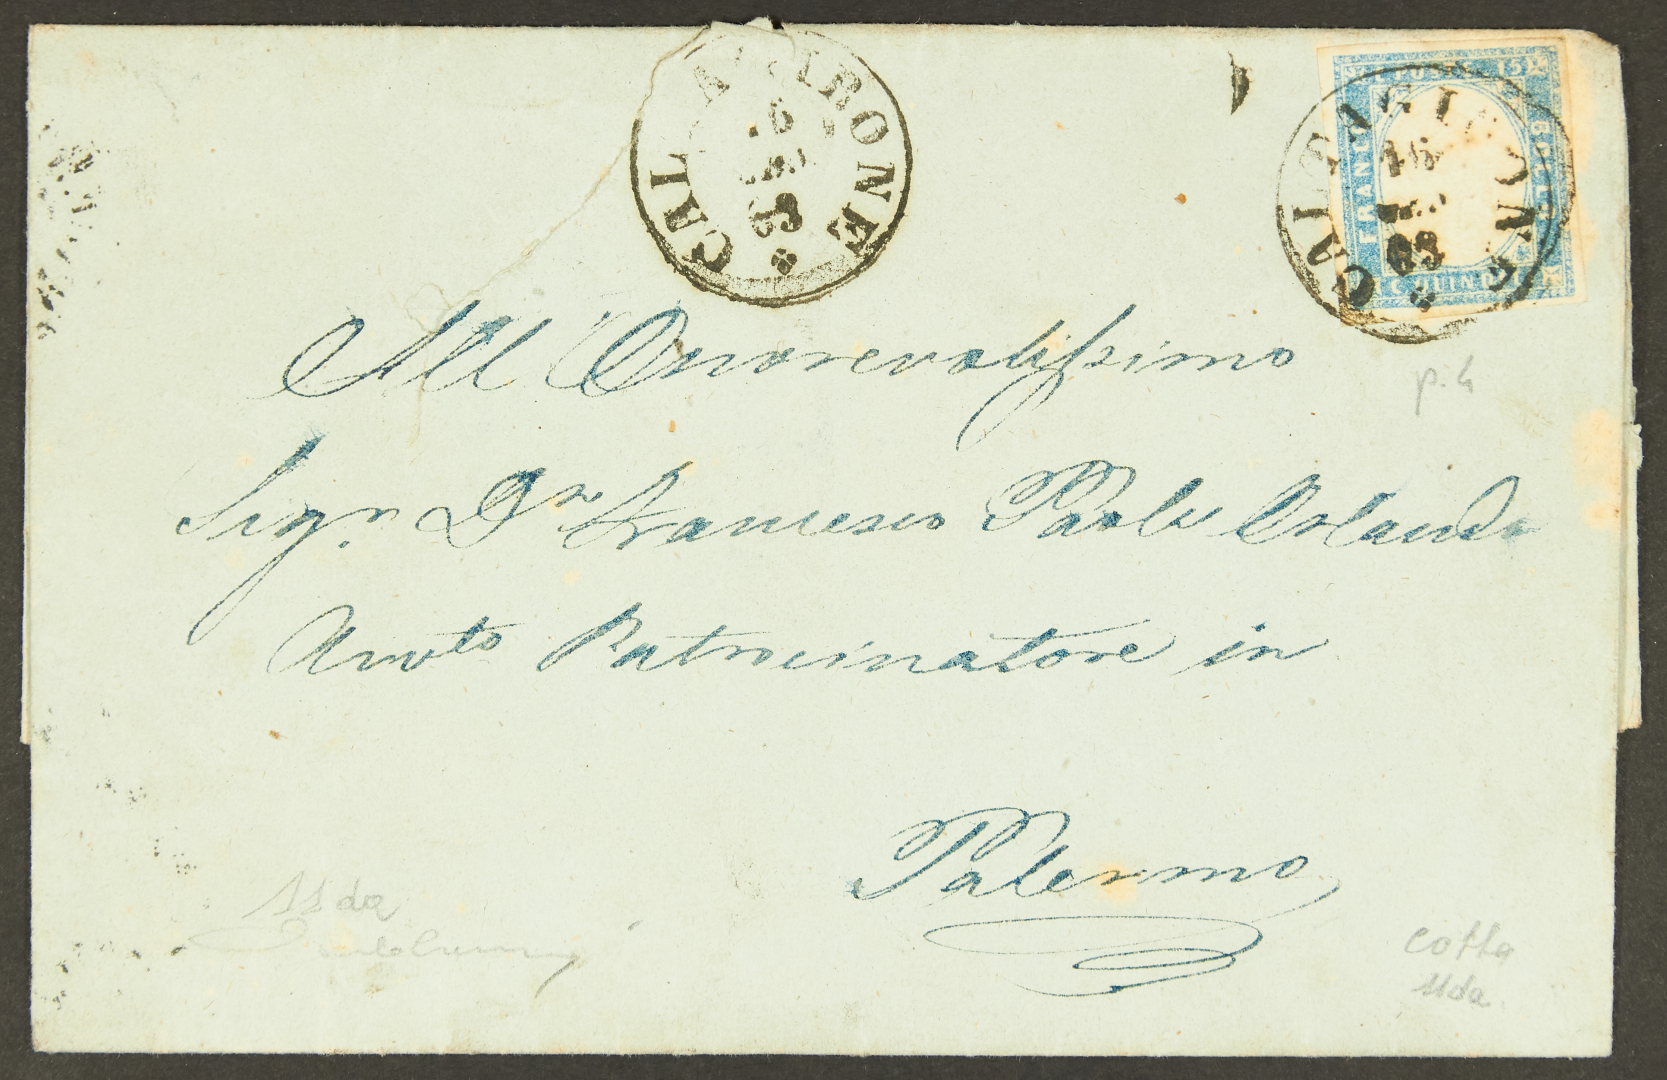 CALTAGIRONE
63
C. POSTE 15
FRANCO
BOLLO
C. QUINDICI
CALTAGIRONE
16
63
All Onorevolissimo
p. 4
Sigr. Dn Francesco Paolo Orlando
Avvto Patrocinatore in
Palermo
11da
cotta
11da